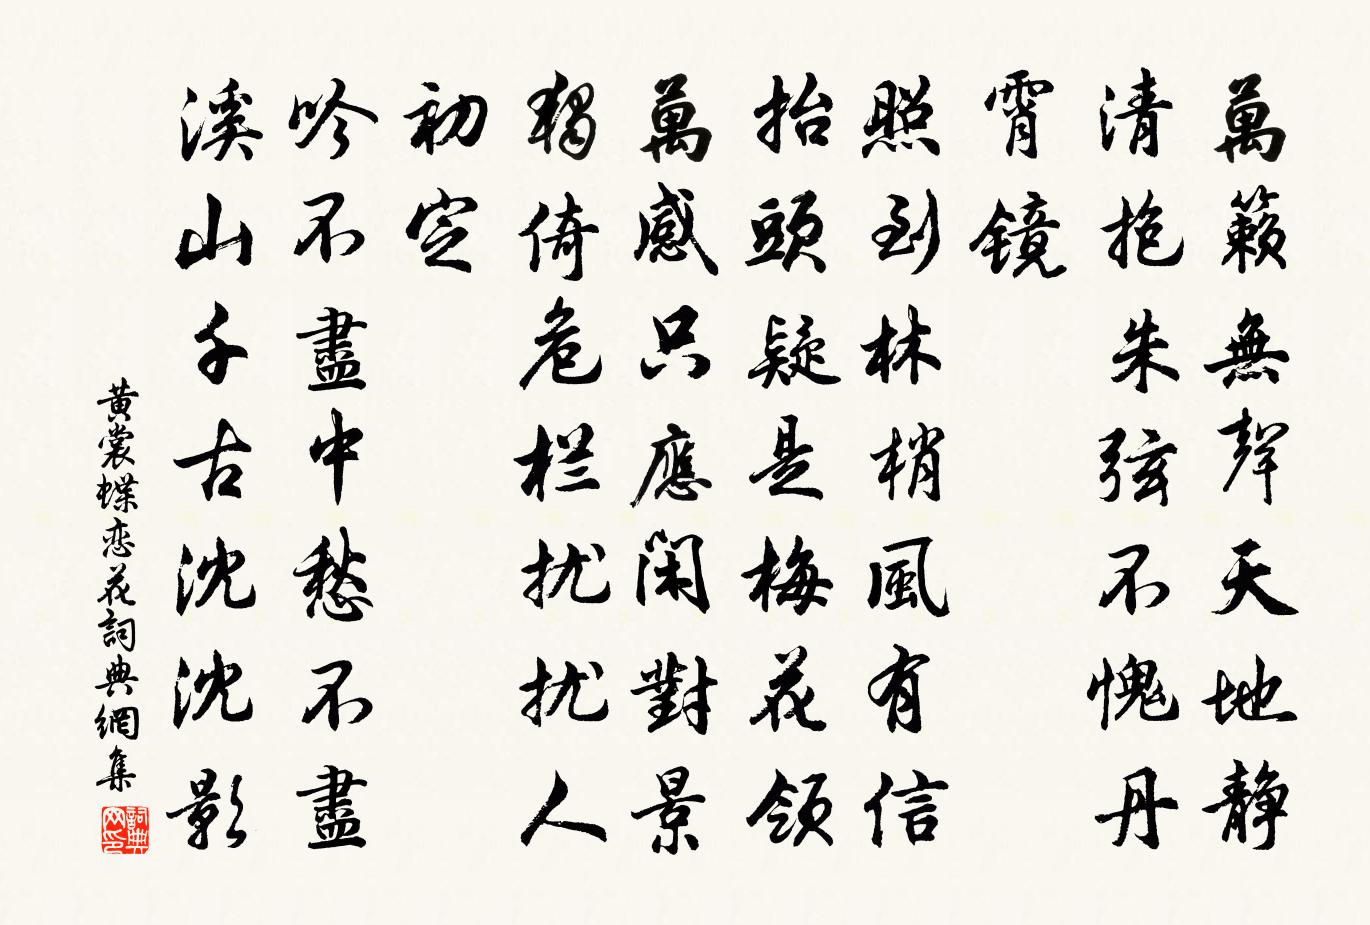 萬籟無聲天地静
清抱朱弦不愧丹
霄镜
照到林梢風有信
抬頭疑是梅花領
萬感只應闲對景
獨倚危栏扰扰人
初定
吟不盡中愁不盡
溪山千古沈沈影
黄裳蝶恋花詞典網集
詞典網印